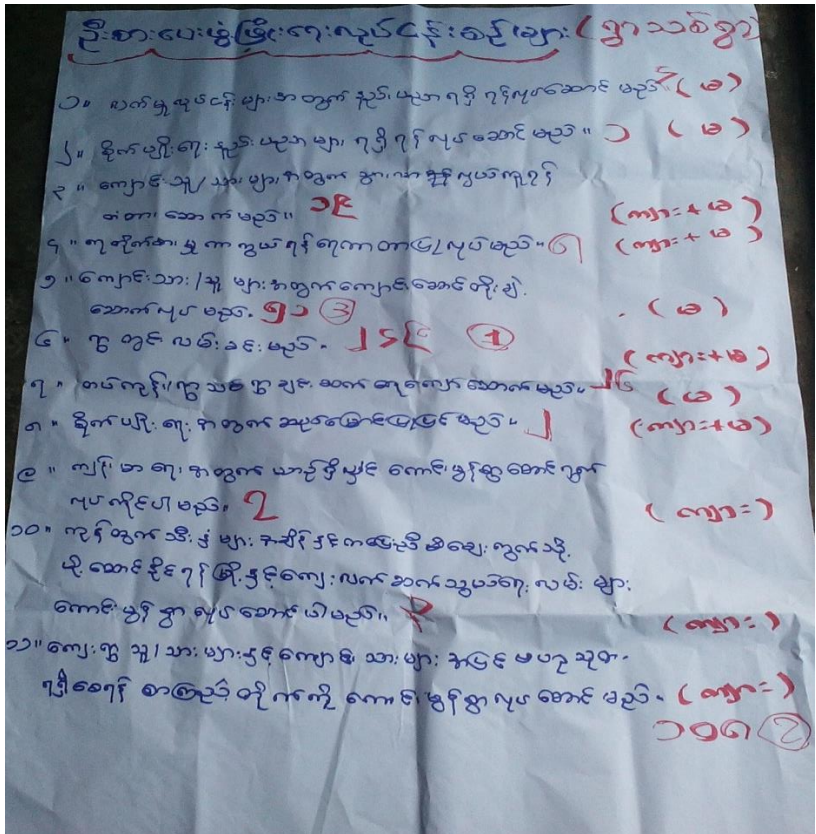 ဦးစားပေးဖွံ့ဖြိုးရေးလုပ်ငန်းစဉ်များ (ရွာသစ်ရွာ)
၁။ လက်မှုလုပ်ငန်းများအတွက် နည်းပညာရရှိရန်လုပ်ဆောင်မည်။ (မ)
၂။ စိုက်ပျိုးရေးနည်းပညာများ ရရှိရန်လုပ်ဆောင်မည်။ ၁ (မ)
၃။ ကျောင်းသူ/သားများအတွက် သွားလာရန်လွယ်ကူရန်
တံတားဆောက်မည်။ ၁၄ (ကျား+မ)
၄။ ရေတိုက်စားမှုကာကွယ်ရန်ရေကာတာပြုလုပ်မည်။ ၈ (ကျား+မ)
၅။ ကျောင်းသား/သူများအတွက်ကျောင်းဆောင်တိုးချဲ့
ဆောက်လုပ်မည်။ ၅၁ ③ (မ)
၆။ ရွာတွင်းလမ်းခင်းမည်။ (ကျား+မ)
၇။ ရွာသစ်ရွာချင်းဆက်တံတားဆောက်မည်။ ၂၆ (မ)
၈။ စိုက်ပျိုးရေးအတွက်ဆည်မြောင်းပြုပြင်မည်။ ၂ (ကျား+မ)
၉။ ကျန်းမာရေးအတွက် ကောင်းမွန်စွာဆောင်ရွက်
လုပ်ကိုင်ပါမည်။ ၇ (ကျား)
၁၀။ ကုန်ထွက်သီးနှံများ အချိန်နှင့်တပြေးညီ ဈေးကွက်သို့
ပို့ဆောင်နိုင်ရန်မြို့နှင့်ကျေးလက်ဆက်သွယ်ရေးလမ်းများ
ကောင်းမွန်စွာလုပ်ဆောင်ပါမည်။ (ကျား)
၁၁။ ကျေးရွာသူ/သားများနှင့်ကျောင်းသားများ အပြင်ဗဟုသုတ
ရရှိစေရန် စာကြည့်တိုက်ကို ကောင်းမွန်စွာလုပ်ဆောင်မည်။ (ကျား)
၁၀၈ ②